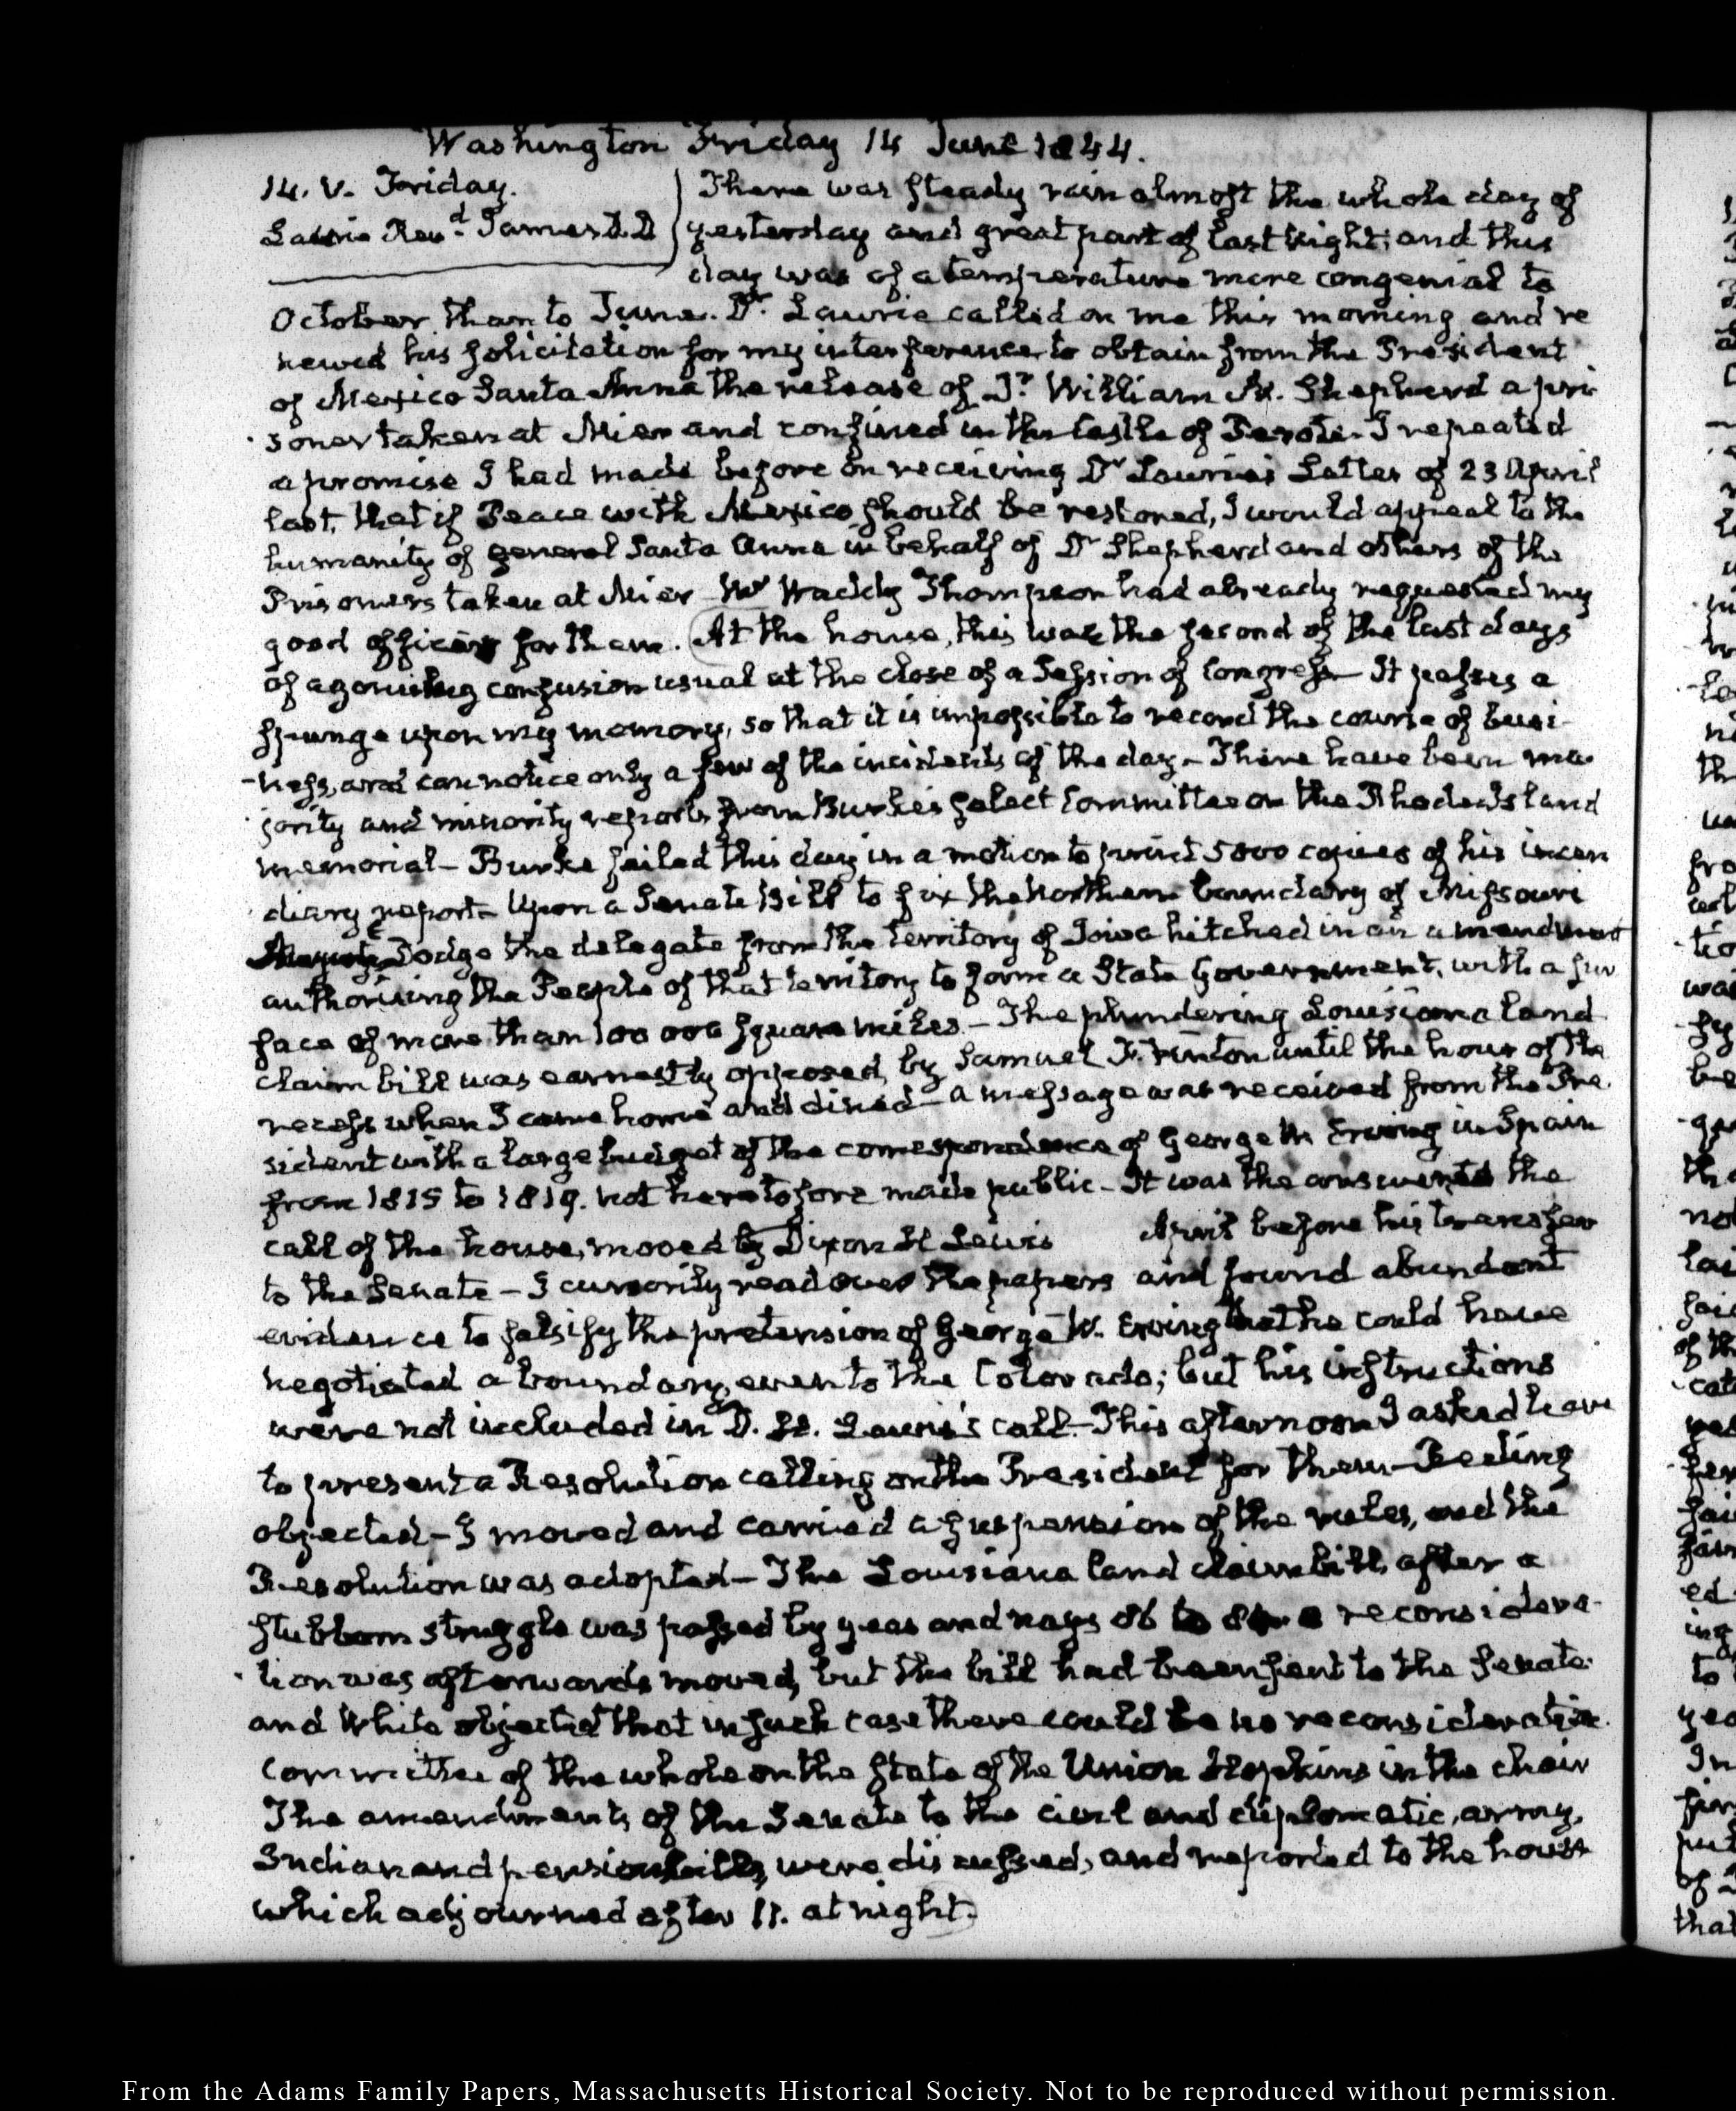 Washington Friday 14 June 1844.
14. V. Friday.
Laurie Revd. James D.D
There was steady rain almost the whole day of
yesterday and great part of last night; and this
day was of a temperature more congenial to
October than to June. Dr. Laurie called on me this morning and re
newed his solicitation for my interference to obtain from the President
of Mexico Santa Anna the release of Dr. William M. Shepherd a pri-
soner taken at Mier and confined in the Castle of Perote. I repeated
a promise I had made before on receiving Dr Laurie's Letter of 23 April
last, that if Peace with Mexico should be restored, I would appeal to the
humanity of general Santa Anna in behalf of Dr Shepherd and others of the
Prisoners taken at Mier Mr Waddy Thompson had already requested my
good offices for them. At the house, this was the second of the last days
of agonizing confusion usual at the close of a Session of Congress— It passes a
spunge upon my memory, so that it is impossible to record the course of busi-
ness, and can notice only a few of the incidents of the day— There have been ma-
jority and minority reports from Burke's select Committee on the Rhode Island
memorial— Burke failed this day in a motion to print 5000 copies of his incen
diary report— Upon a Senate Bill to fix the Northern boundary of Missouri
Dodge the delegate from the territory of Iowa hitched in an amendment
authorising the People of that territory to form a State Government, with a sur
face of more than 100 000 square miles.— The plundering Louisiana land
claim bill was earnestly opposed by Samuel F. Vinton until the hour of the
recess when I came home and dined— a message was received from the Pre
sident with a large budget of the correspondence of George W Erving in Spain
from 1815 to 1819. not heretofore made public— It was the answer to the
call of the house, moved by Dixon H Lewis April before his transfer
to the Senate— I cursorily read over the papers and found abundant
evidence to falsify the pretension of George W. Erving that he could have
negotiated a boundary, even to the Colorado; but his instructions
were not included in D. H. Lewis's call.— This afternoon I asked leave
to present a Resolution calling on the President for them— Reding
objected— I moved and carried a suspension of the rules, and the
Resolution was adopted— The Louisiana land claim bill, after a
stubborn struggle was passed by yeas and nays 86 to a reconsidera-
tion was afterwards moved, but the bill had been sent to the Senate
and White objected that in such case there could be no reconsideration.
Committee of the whole on the state of the Union Hopkins in the chair
The amendments of the Senate to the civil and diplomatic, army,
Indian and pension bills, were discussed, and reported to the house
which adjourned after 11. at night.
From the Adams Family Papers, Massachusetts Historical Society. Not to be reproduced without permission.